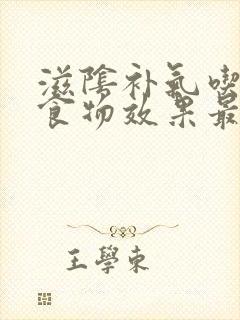 滋陰补氣喫
食物效果最
王學東